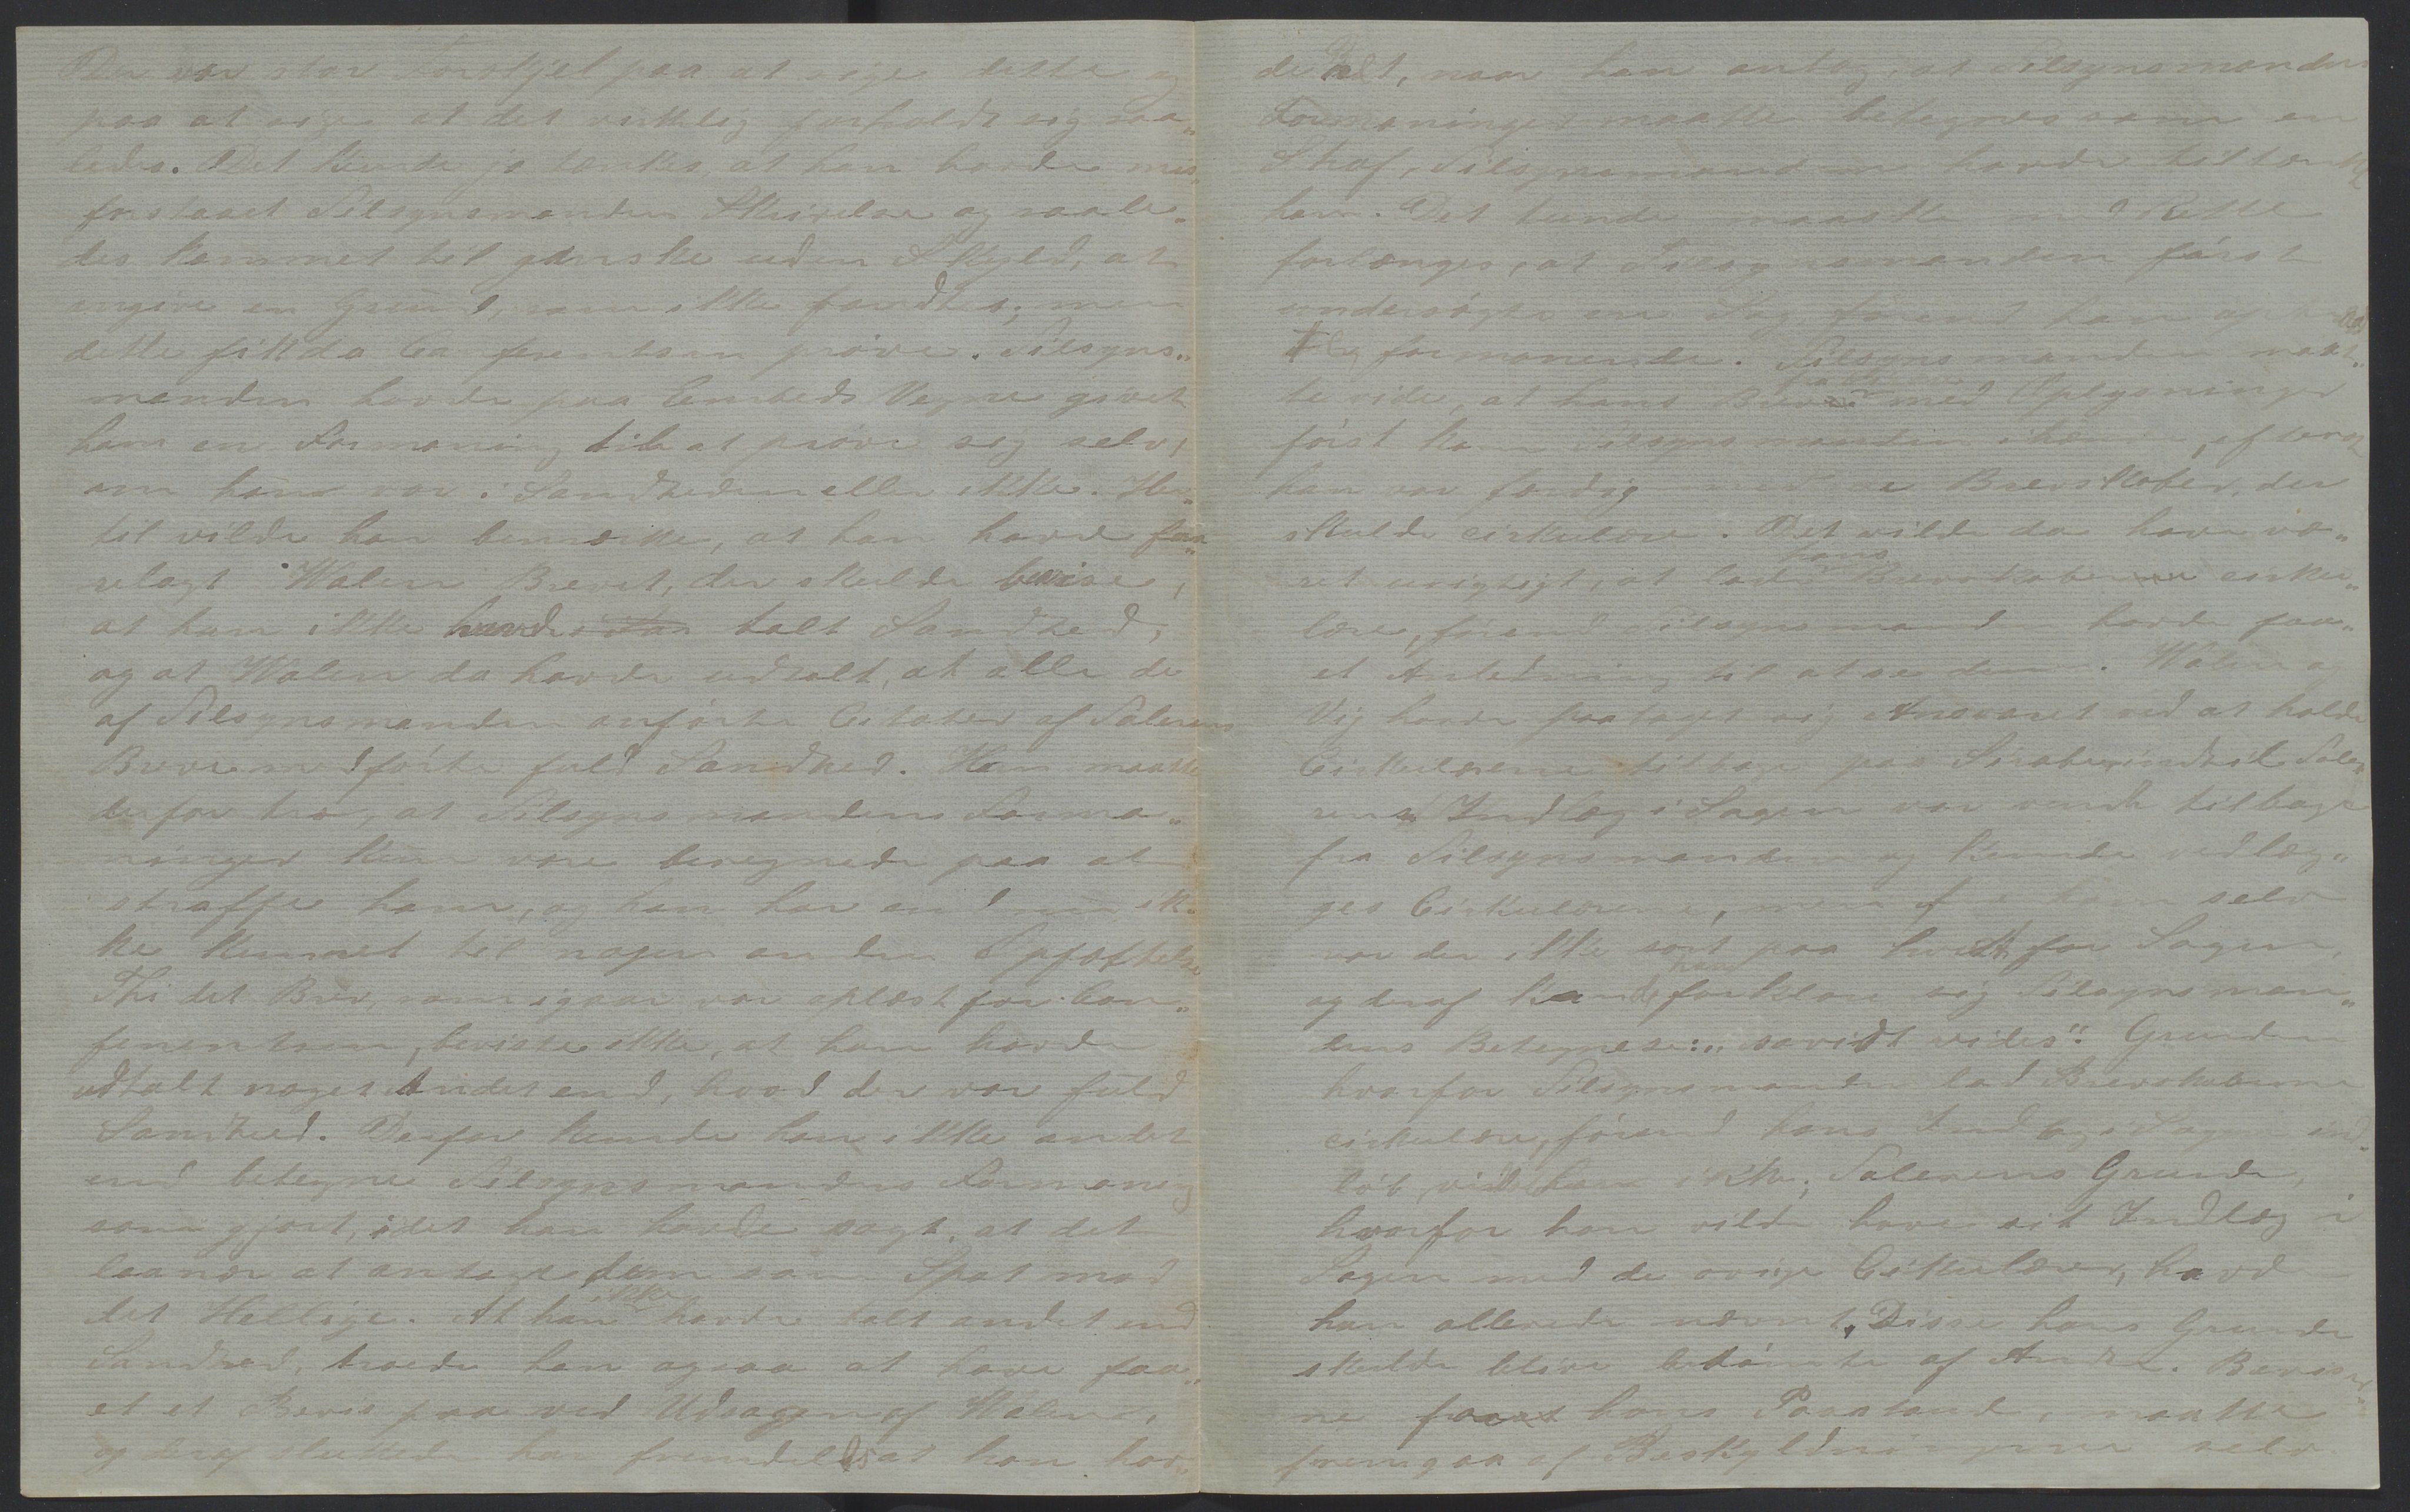 Der var stor Forskjel paa at sige dette og
paa at sige at det virkelig forholdt sig saa„
ledes. Det kunde jo tænkes, at han havde mis„
forstaaet Tilsynsmandens Skrivelse og saale„
des kommet til ganske uden Skyld, at
angive en Grund, som ikke fandtes; men
dette fik da Conferentsen prøve. Tilsyns„
manden havde paa Embeds Vegne givet
ham en Formaning til at prøve sig selv,
om han var i Sandheden eller ikke. Her„
til vilde han bemærke, at han havde fore„
relagt Walen Brevet, der skulde bevise,
at han ikke havde talt Sandhed,
og at Walen da havde udtalt, at alle de
af Tilsynsmanden anførte Citater af Talerens
Breve medførte fuld Sandhed. Han maatte
derfor tro, at Tilsynsmandens Forma„
ninger kun vare beregnede paa at
straffe ham, og han har endnu ik„
ke kunnet til nogen anden Opfattelse
Thi det Brev, som igaar var oplæst for Con„
ferentsen, beviste ikke, at han havde
udtalt noget Andet end, hvad der var fuld
Sandhed. Derfor kunde han ikke andet
end betegne Tilsynsmandens Formaning
som gjort, idet han havde sagt, at det
laa nær at antage dem som Spot mod
det Hellige. At han ikke havde talt andet end
Sandhed, troede han ogsaa at have faa„
et et Bevis paa ved Udsagn af Walen,
og deraf sluttede han fremdeles at han hav„
de Ret, naar han antog, at Tilsynsmandens
Formaninger maatte betegnes som en
Straf, Tilsynsmanden havde tiltænkt
ham. Det kunde maaske med Rette
forlanges, at Tilsynsmanden först
undersögte en Sag, förend han optraadte
formanende. Tilsynsmanden maat„
te vide, at hans Breve med Oplysninger
först kom Tilsynsmanden ihænde, efterat
han var færdig med de Brevskaber, der
skulde cirkulere. Det vilde da have væ„
ret urigtigt, at lade hans Brevskaber cirku„
lere, förend Tilsynsmanden havde faa„
et Anledning til at se dem. Walen og
Vig havde paataget sig Ansvaret ved at holde
Cirkulærene tilbage paa Sirabe indtil Tale„
rens Indlæg i Sagen var vendt tilbage
fra Tilsynsmanden og kunde vedlæg„
ges Cirkulærene, men fra ham selv
var der ikke sort paa hvidt for Sagen,
og deraf kunde han forklare sig Tilsynsman„
dens Betegnelse: „saavidt vides“. Grunden
hvorfor Tilsynsmanden lod Brevskaberne
cirkulere, förend hans Indlæg i Sagen ind„
löb, vidste han ikke; Talerens Grunde,
hvorfor han vilde have sit Indlæg i
Sagen med de övrige Cirkulærer, havde
han allerede nævnt. Disse hans Grunde
skulde blive bedömte af Andre. Beviser„
ne for hans Paastand, maatte
fremgaa af Beskyldningerne selv.